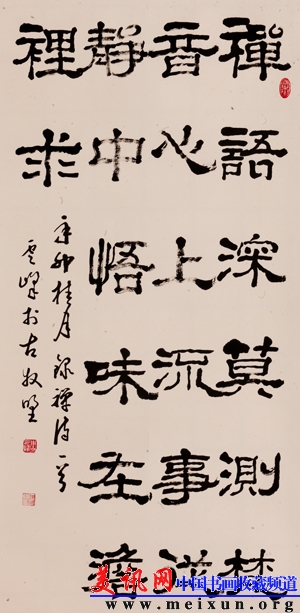 禪語深莫測梵
音心上流事從
靜中悟味在澹
裡求
辛卯桂月錄禪詩一首
雲峰於古牧野
美讯网 中国书画收藏频道
www.meixun.org